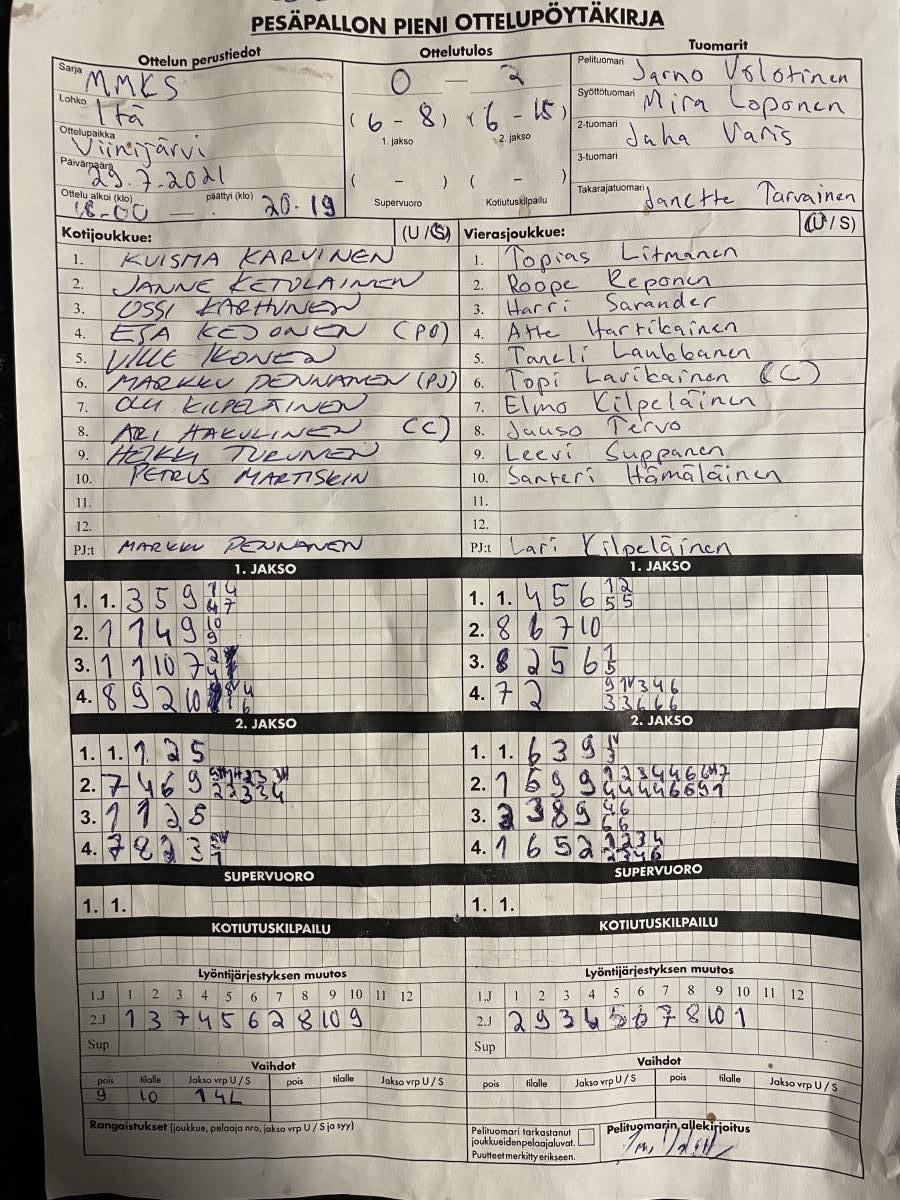 PESÄPALLON PIENI OTTELUPÖYTÄKIRJA
Ottelun perustiedot
Sarja MMKS
Lohko Itä
Ottelupaikka Viinijärvi
Päivämäärä 29.7.2021
Ottelu alkoi (klo) 18-00 — päättyi (klo) 20.19
Ottelutulos
0 — 2
(6 - 8) (6 - 15)
1. jakso 2. jakso
( - ) ( - )
Supervuoro Kotiutuskilpailu
Tuomarit
Pelituomari Jarno Volotinen
Syöttötuomari Mira Loponen
2-tuomari Juha Varis
3-tuomari
Takarajatuomari Janette Tarvainen
Kotijoukkue: (U / S)
1. KUISMA KARVINEN
2. JANNE KETOLAINEN
3. OSSI KARHUNEN
4. ESA KEJONEN (PO)
5. VILLE IKONEN
6. MARKKU PENNANEN (PJ)
7. OLLI KILPELÄINEN
8. ARI HAKULINEN (C)
9. HEIKKI TURUNEN
10. PETRUS MARTISKIN
11.
12.
PJ:t MARKKU PENNANEN
Vierasjoukkue: (U / S)
1. Topias Litmanen
2. Roope Reponen
3. Harri Sarander
4. Atte Hartikainen
5. Taneli Laukkanen
6. Topi Lavikainen (C)
7. Elmo Kilpeläinen
8. Juuso Tervo
9. Leevi Suppanen
10. Santeri Hämäläinen
11.
12.
PJ:t Lari Kilpeläinen
1. JAKSO
1. 1. 3 5 9
2. 1 7 4 9 10 9
3. 1 1 10 7
4. 8 9 2 10
1. JAKSO
1. 1. 4 5 6 1 2 5 5
2. 8 6 7 10
3. 8 2 5 6 1 5
4. 7 2
2. JAKSO
1. 1. 1 2 5
2. 7 4 6 9
3. 1 1 2 5
4. 7 8 2 3
2. JAKSO
1. 1. 6 3 9
2. 1 5 9 9
3. 2 3 8 9 4 6 6 6
4. 1 6 5 2
SUPERVUORO
1. 1.
SUPERVUORO
1. 1.
KOTIUTUSKILPAILU
KOTIUTUSKILPAILU
Lyöntijärjestyksen muutos
1.J 1 2 3 4 5 6 7 8 9 10 11 12
2.J 1 3 7 4 5 6 2 8 10 9
Sup
Lyöntijärjestyksen muutos
1.J 1 2 3 4 5 6 7 8 9 10 11 12
2.J 2 9 3 4 5 6 7 8 10 1
Sup
Vaihdot
pois tilalle Jakso vrp U / S pois tilalle Jakso vrp U / S
9 10 1 4L
Vaihdot
pois tilalle Jakso vrp U / S pois tilalle Jakso vrp U / S
Rangaistukset (joukkue, pelaaja nro, jakso vrp U / S ja syy)
Pelituomari tarkastanut
joukkueiden pelaajaluvat.
Puutteet merkitty erikseen.
Pelituomarin allekirjoitus